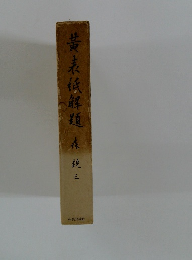 黄表紙解題
森銑三